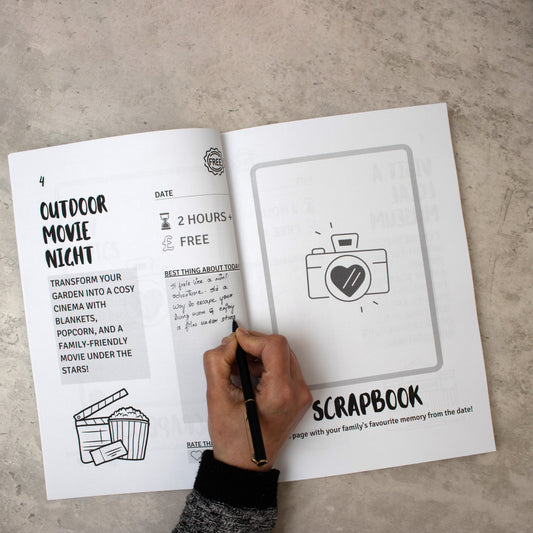 4
OUTDOOR
MOVIE
NIGHT
TRANSFORM YOUR
GARDEN INTO A COSY
CINEMA WITH
BLANKETS,
POPCORN, AND A
FAMILY-FRIENDLY
MOVIE UNDER THE
STARS!
FREE
DATE
2 HOURS+
£ FREE
BEST THING ABOUT TODAY
It feels like a mini
adventure.
way to escape your
living room & enjoy
a film under stars
SCRAPBOOK
page with your family's favourite memory from the date!